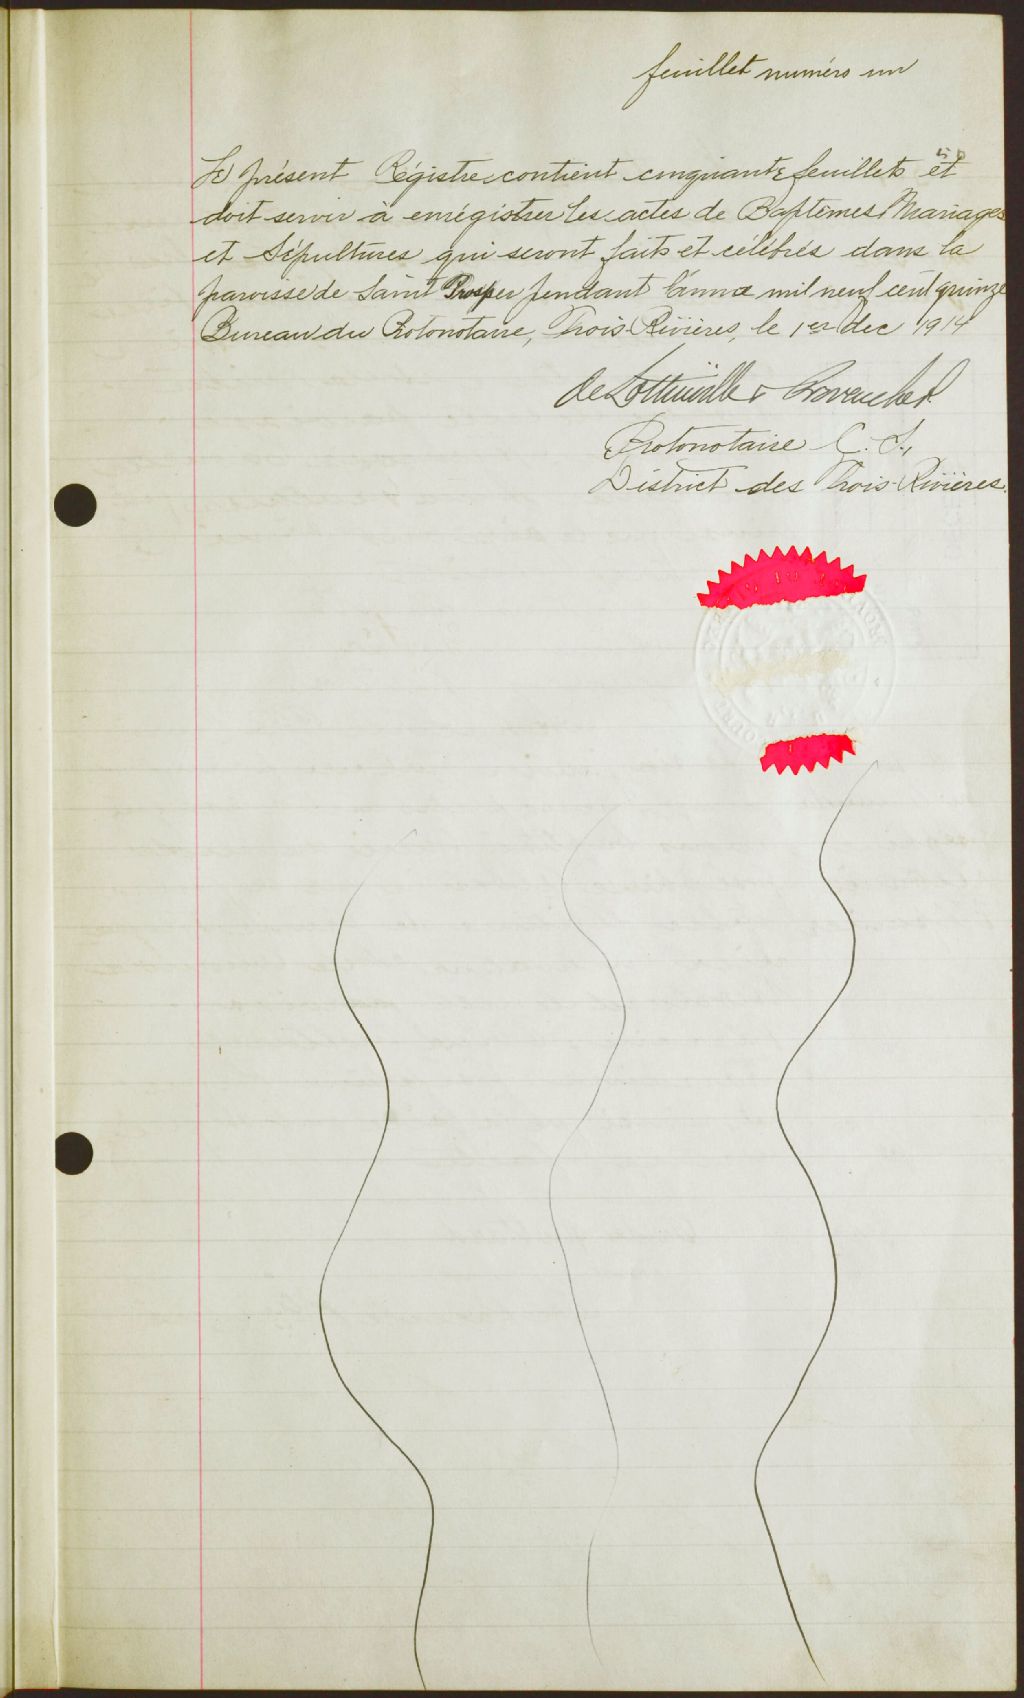 feuillet numéro un
Le présent Régistre contient cinquante feuillets et
doit servir à enrégistrer les actes de Baptêmes Mariages
et Sépultures qui seront faits et célébrés dans la
paroisse de Saint Prosper pendant l'année mil neuf cent quinze
Bureau du Protonotaire, Trois-Rivières, le 1er dec 1914
de Lottinville & Provencher
Protonotaire C. S.,
District des Trois-Rivières.